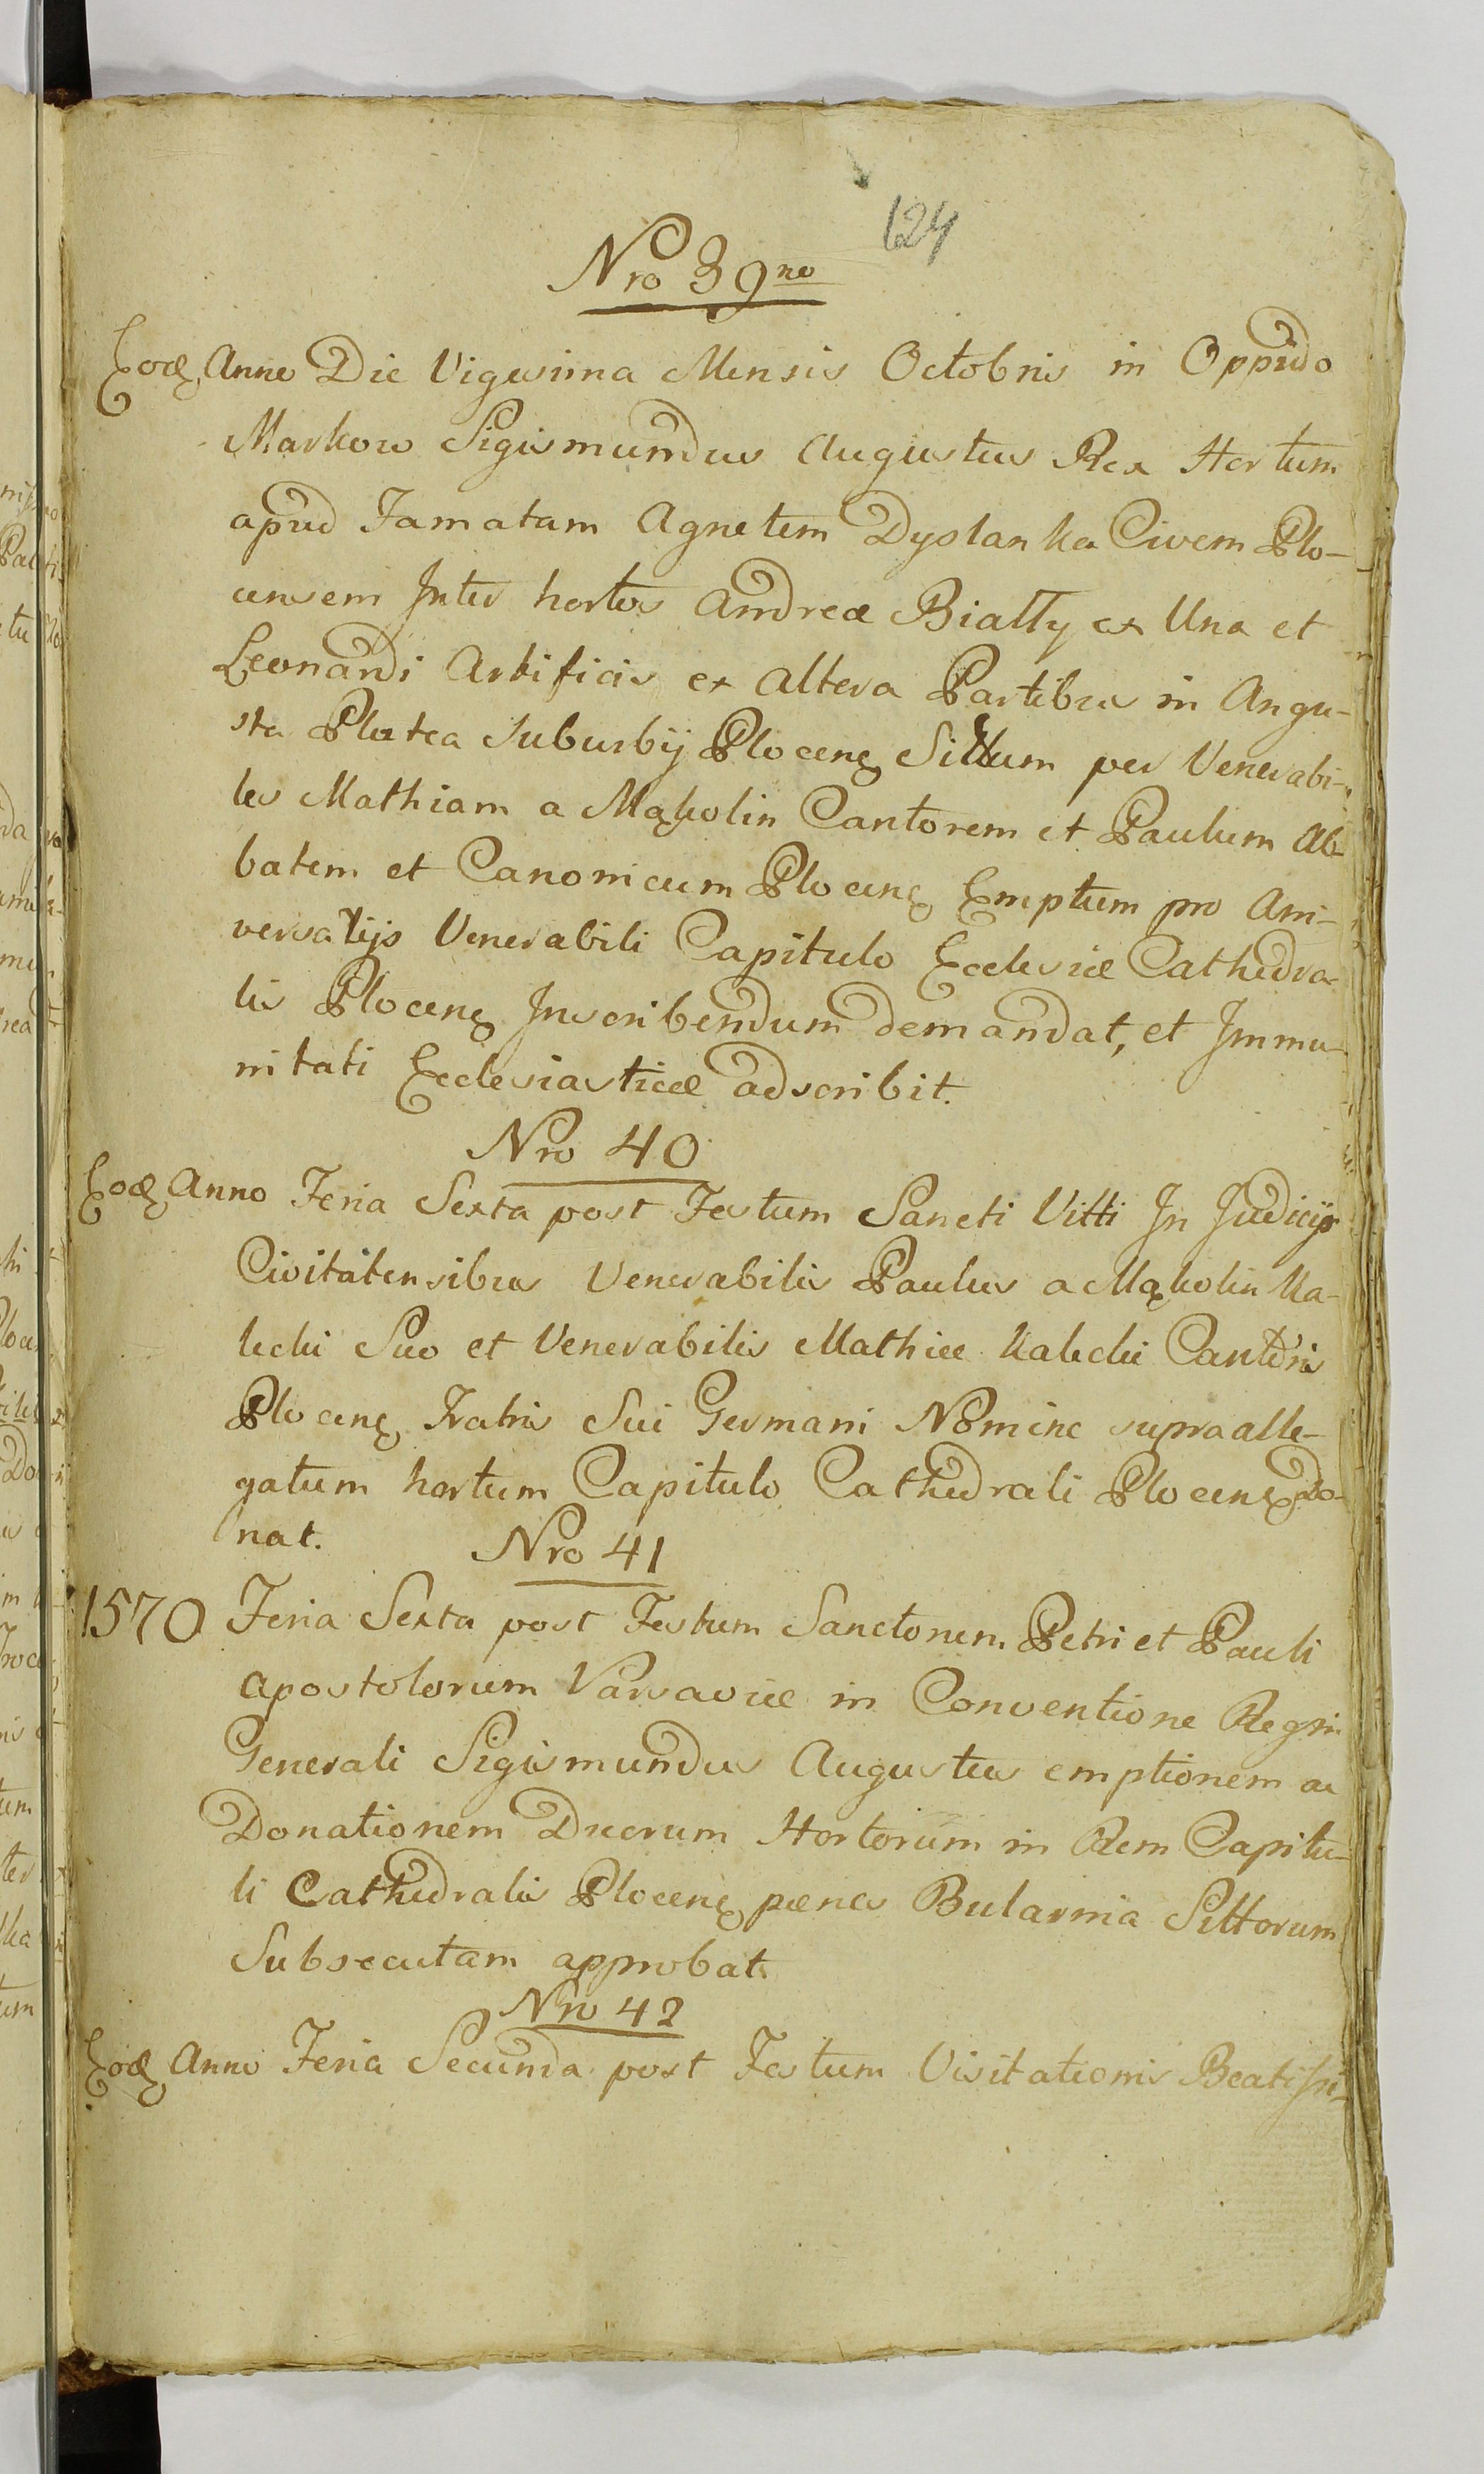 124
Nro 39no
Eod. Anno Die Vigesima Mensis Octobris in Oppido
Markow Sigismundus Augustus Rex Hortum
apud Famatam Agnetem Dyslanka Civem Plo-
censem Inter hortos Andreæ Biatty ex Una et
Leonardi Artificis ex Altera Partibus in Angu-
sta Platea Suburbij Plocenę Sittum per Venerabi-
les Mathiam a Mąkolin Cantorem et Paulum Ab-
batem et Canonicum Plocenę Emptum pro Ani-
versatijs Venerabili Capitulo Ecclesiæ Cathedra-
lis Plocenę Inscribendum demandat, et Immu-
nitati Ecclesiasticæ adscribit.
Nro 40
Eod. Anno Feria Sexta post Festum Sancti Vitti In Judicijs
Civitatensibus Venerabilis Paulus a Mąkolin Ka-
lecki Suo et Venerabilis Mathiæ Kalecki Cantoris
Plocenę Fratris Sui Germani Nomine supraalle-
gatum hortum Capitulo Cathedrali Plocenę Do-
nat.
Nro 41
1570 Feria Sexta post Festum Sanctorum Petri et Pauli
Apostolorum Varsaviæ in Conventione Regni
Generali Sigismundus Augustus emptionem ac
Donationem Duorum Hortorum in Rem Capitu-
li Cathedralis Plocenę pænes Bularnia Sittorum
Subsecutam approbat.
Nro 42
Eod. Anno Feria Secunda post Festum Visitationis Beatissi-